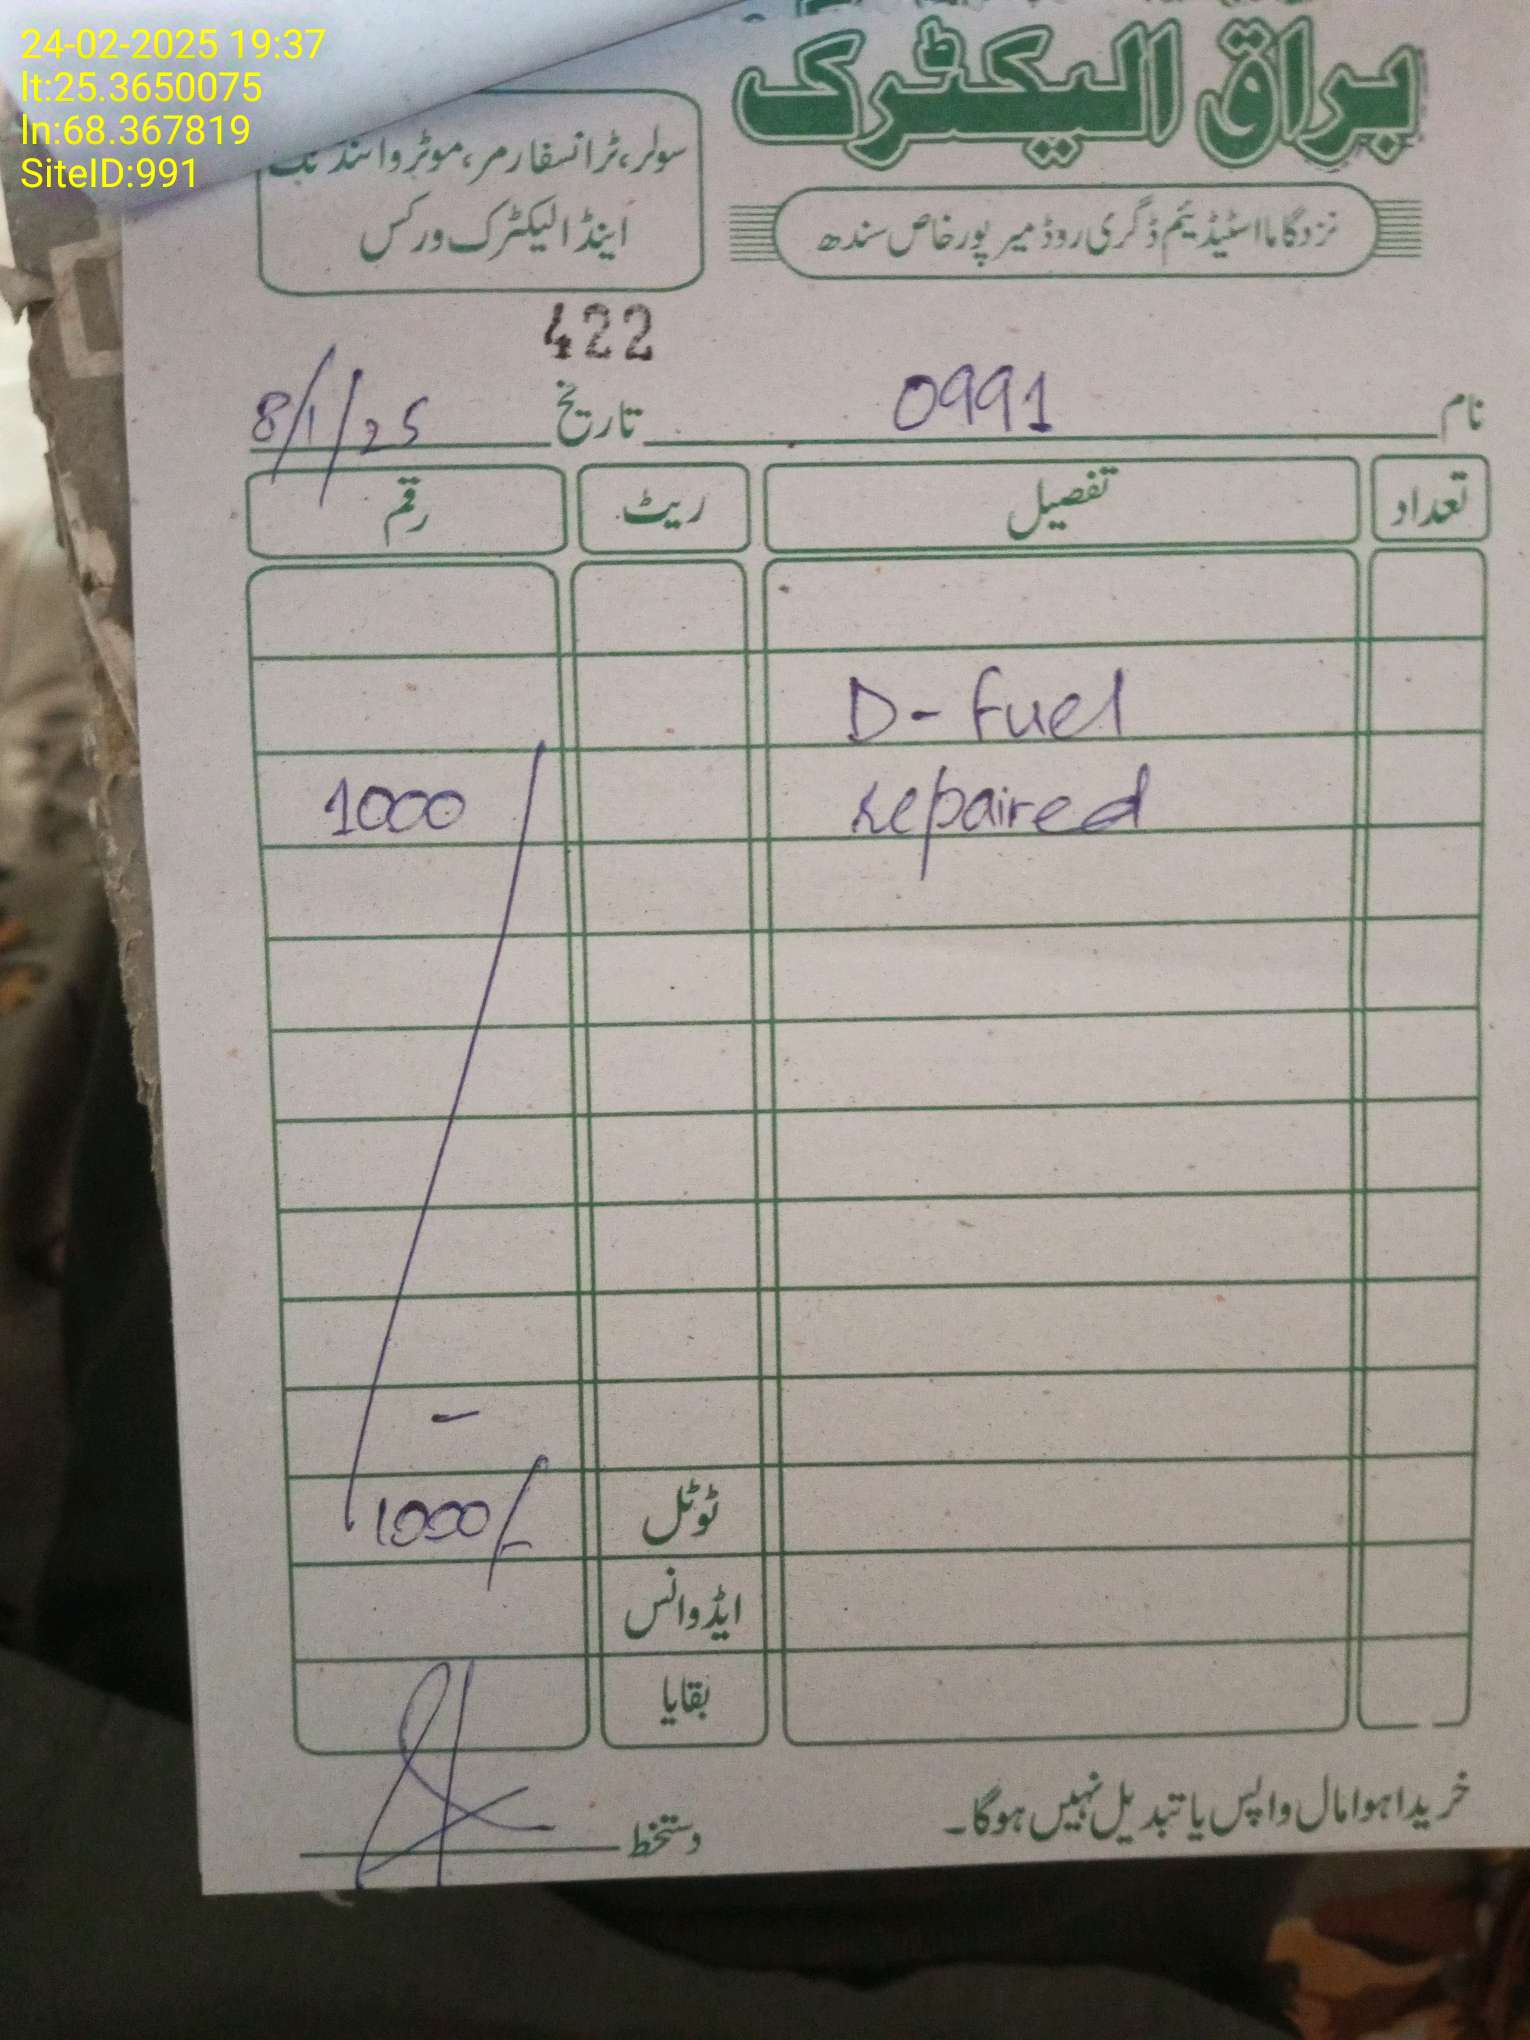 24-02-2025 19:37
lt:25.3650075
ln:68.367819
SiteID:991
براق الیکٹرک
سولر، ٹرانسفارمر، موٹر وائنڈنگ
اینڈ الیکٹرک ورکس
نزد گاما اسٹیڈیم ڈگری روڈ میرپورخاص سندھ
422
نام 0991 تاریخ 8/1/25
تعداد تفصیل ریٹ رقم
D- Fuel
repaired 1000
-
ٹوٹل 1000/-
ایڈوانس
بقایا
خریدا ہوا مال واپس یا تبدیل نہیں ہوگا۔
دستخط